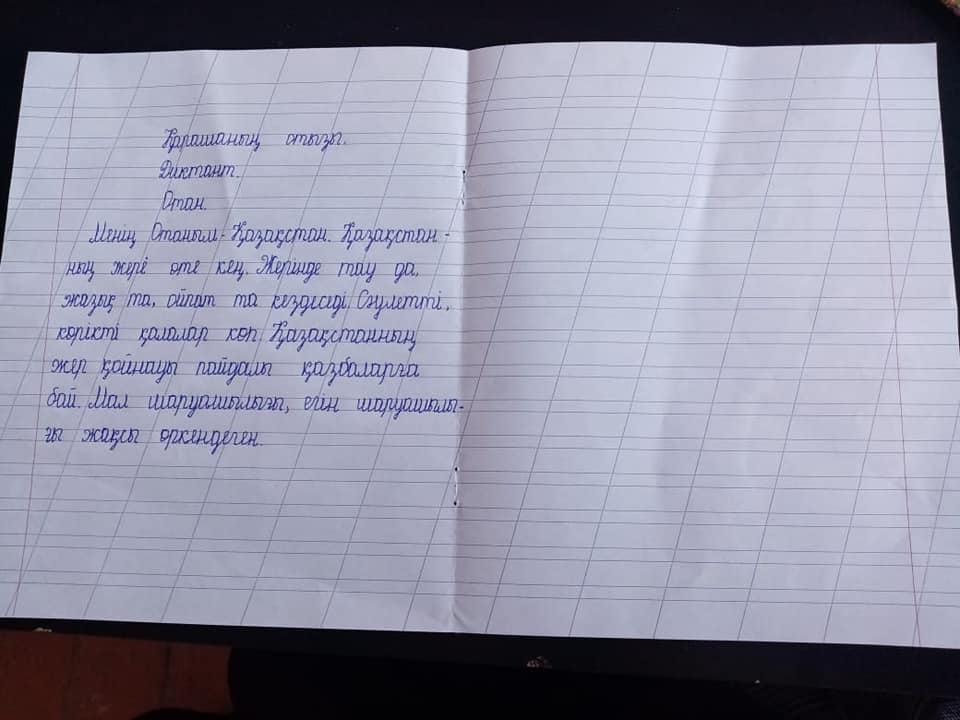 Қарашаның отызы.
Диктант.
Отан.
Менің Отаным - Қазақстан. Қазақстан -
ның жері өте кең. Жерінде тау да,
жазық та, ойпат та кездеседі. Сәулетті,
көрікті қалалар көп. Қазақстанның
жер қойнауы пайдалы қазбаларға
бай. Мал шаруашылығы, егін шаруашылы-
ғы жақсы өркендеген.